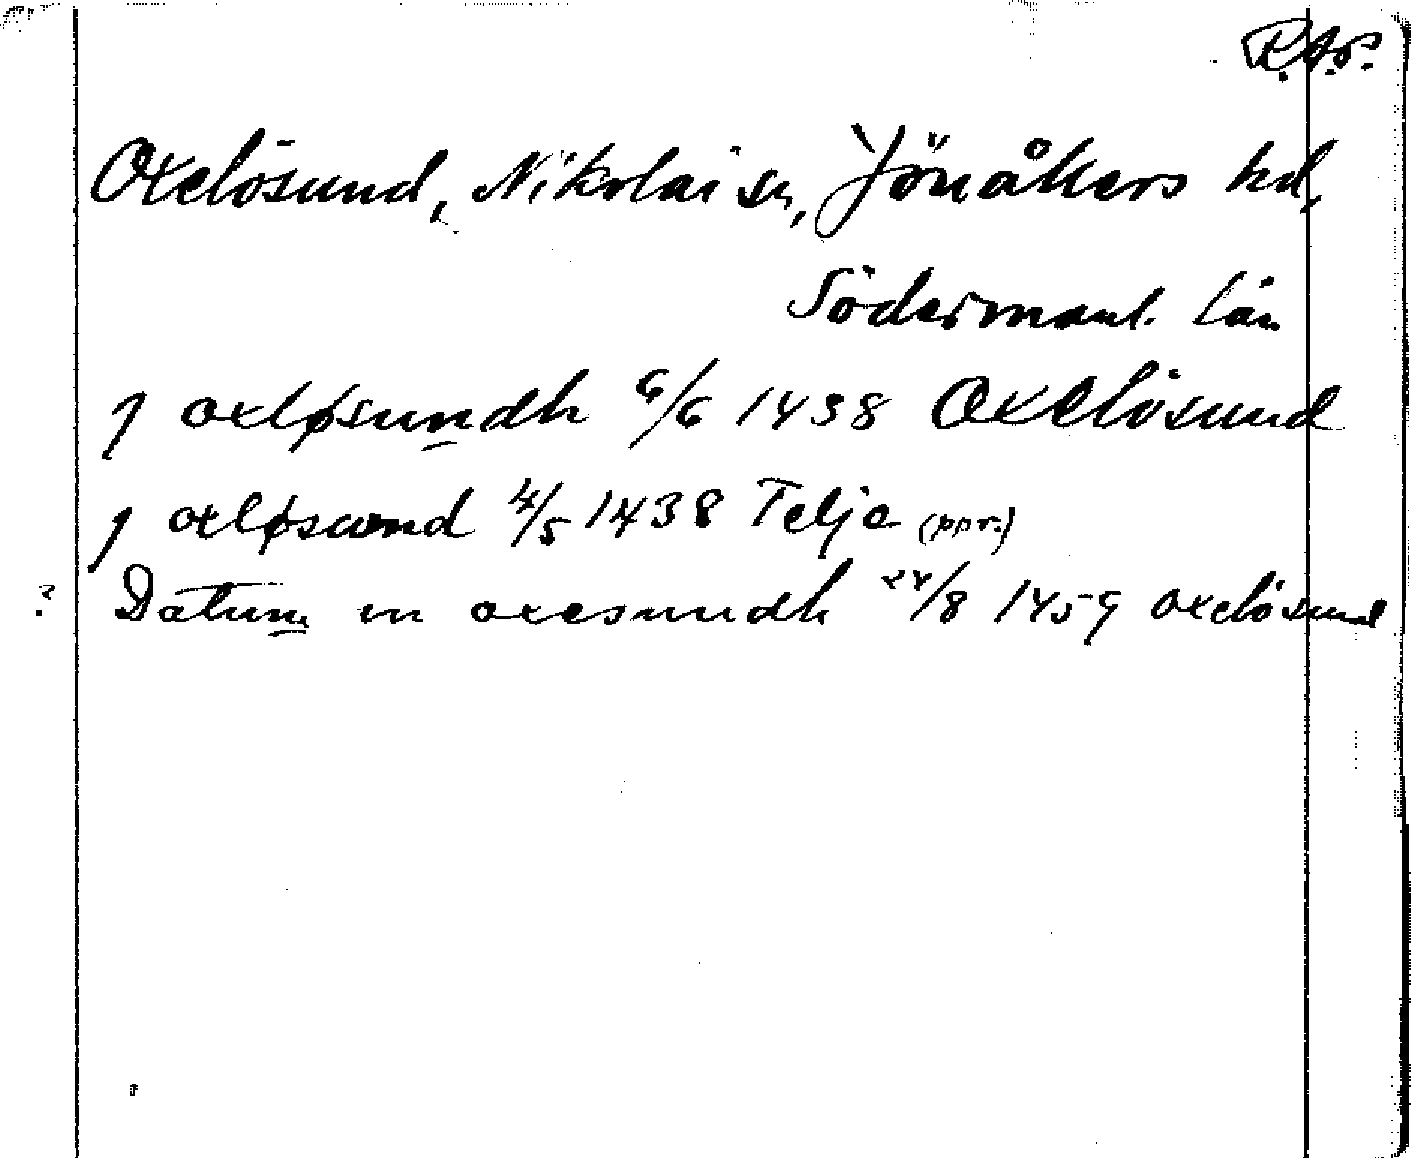 R.A.P.
Oxelösund, Nikolai sn, Jönåkers hd,
Södermanl. län
j oxløsundh 6/6 1438 Oxelösund
j oxløsund 4/5 1438 Telje (ppr.)
? Datum in oxesundh 24/8 1459 oxelösund